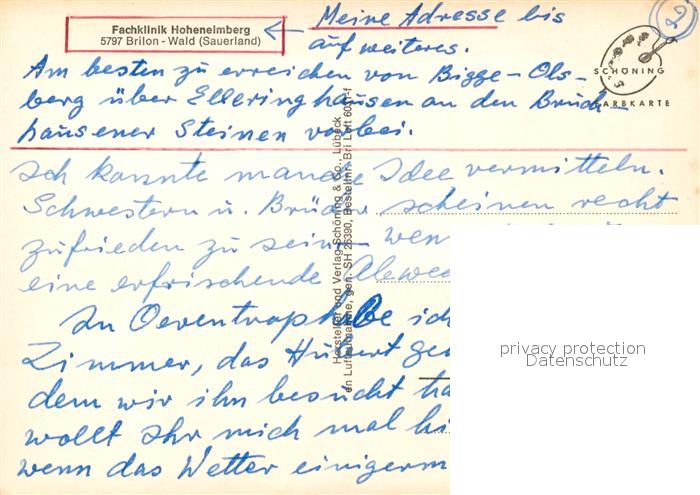 Fachklinik Hoheneimberg
5797 Brilon - Wald (Sauerland)
Meine Adresse bis
auf weiteres.
Am besten zu erreichen von Bigge-Ols-
berg über Elleringhausen an den Bruch-
hausener Steinen vorbei.
Ich konnte manche Idee vermitteln.
Schwestern u. Brüder scheinen recht
zufrieden zu sein – wen
eine erfrischende
In Oeventrop habe ich
Zimmer, das Hubert
dem wir ihn besucht ha
wollt Ihr mich mal hi
wenn das Wetter einigerm
SCHÖNING
FARBKARTE
Hersteller und Verlag Schöning & Co., Lübeck
Luftaufnahme, gen. SH 26390, Bestellnr. Bri Luft
privacy protection
Datenschutz